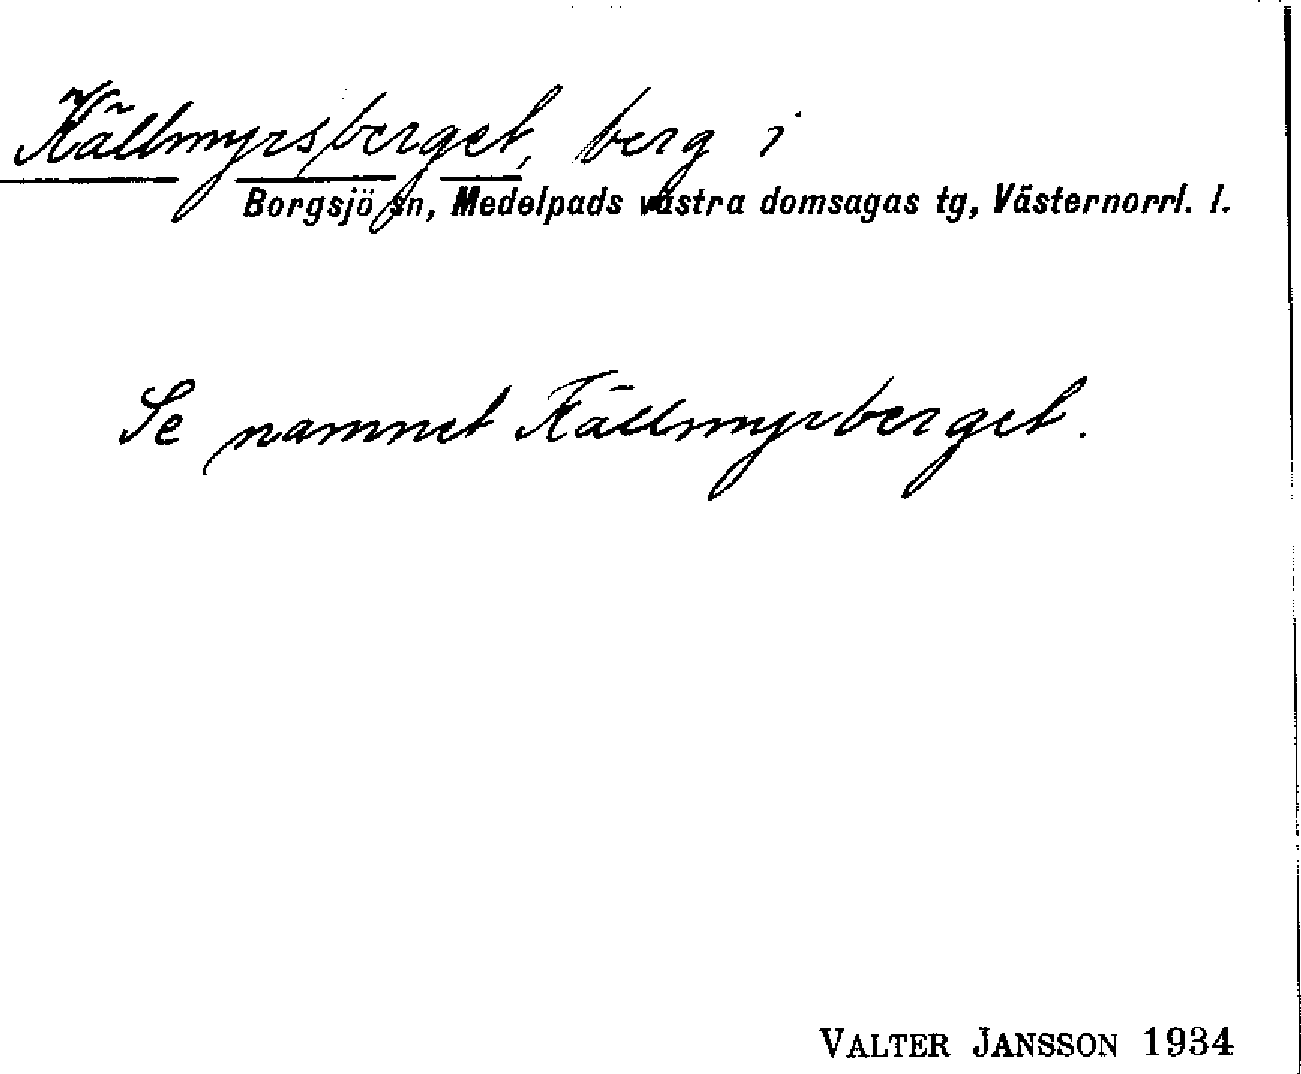 Källmyrsberget, berg i
Borgsjö sn, Medelpads västra domsagas tg, Västernorrl. l.
Se namnet Källmyrberget.
VALTER JANSSON 1934